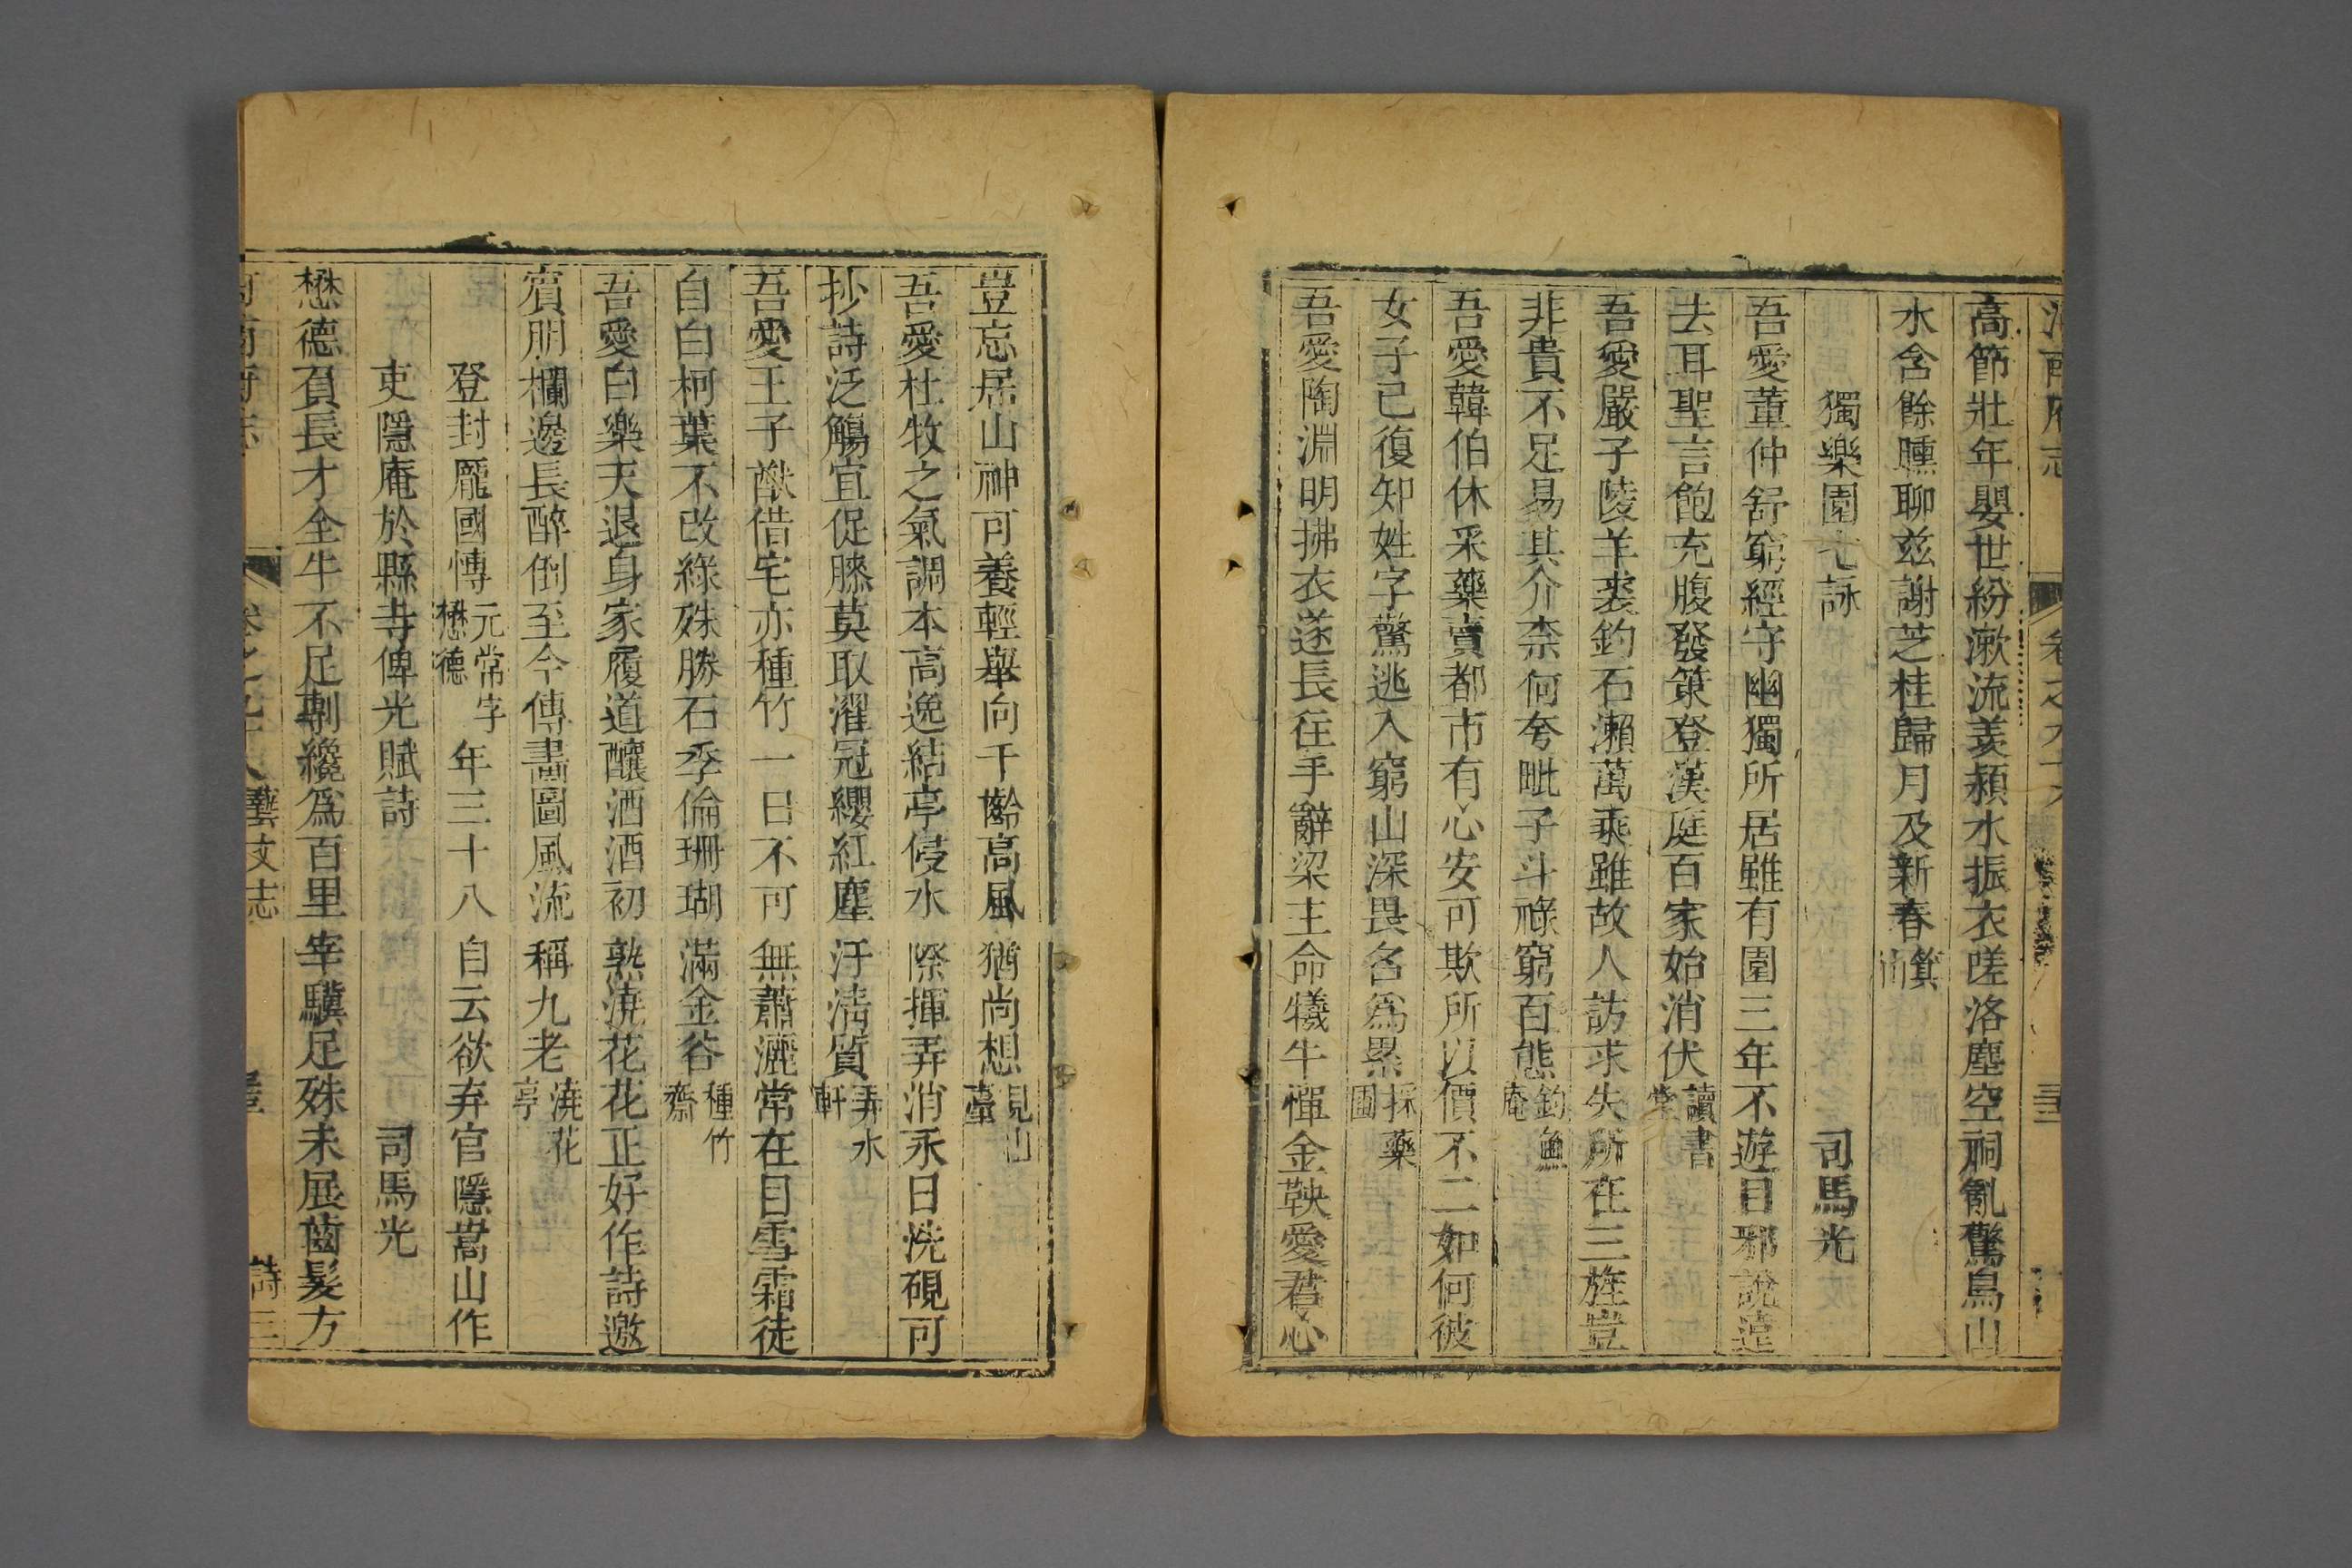 高節壯年嬰世紛漱流羨潁水振衣嗟洛塵空祠亂驚鳥山
水含餘曛聊兹謝芝桂歸月及新春箕
獨樂園七詠　司馬光
吾愛董仲舒窮經守幽獨所居雖有園三年不遊目邪說遠
去耳聖言飽充腹發策登漢庭百家始消伏讀書堂
吾愛嚴子陵羊裘釣石瀨萬乘雖故人訪求失所在三旌豈
非貴不足易其介柰何夸毗子斗祿窮百態釣魚庵
吾愛韓伯休采藥賣都市有心安可欺所以價不二如何彼
女子已復知姓字驚逃入窮山深畏名爲累採藥圃
吾愛陶淵明拂衣遂長往手辭梁主命犧牛憚金鞅愛君心
豈忘居山神可養輕舉向千齡高風猶尚想見山臺
吾愛杜牧之氣調本高逸結亭侵水際揮弄消永日洗硯可
抄詩泛觴宜促膝莫取濯冠纓紅塵汙淸質弄水軒
吾愛王子猷借宅亦種竹一日不可無蕭灑常在目雪霜徒
自白柯葉不改綠殊勝石季倫珊瑚滿金谷種竹齋
吾愛白樂天退身家履道釀酒酒初熟澆花花正好作詩邀
賔朋欄邊長醉倒至今傳畵圖風流稱九老澆花亭
登封龎國博元常字懋德年三十八自云欲弃官隱嵩山作
吏隱庵於縣寺俾光賦詩　司馬光
懋德負長才全牛不足剸纔爲百里宰驥足殊未展齒髮方
藝文志　詩三